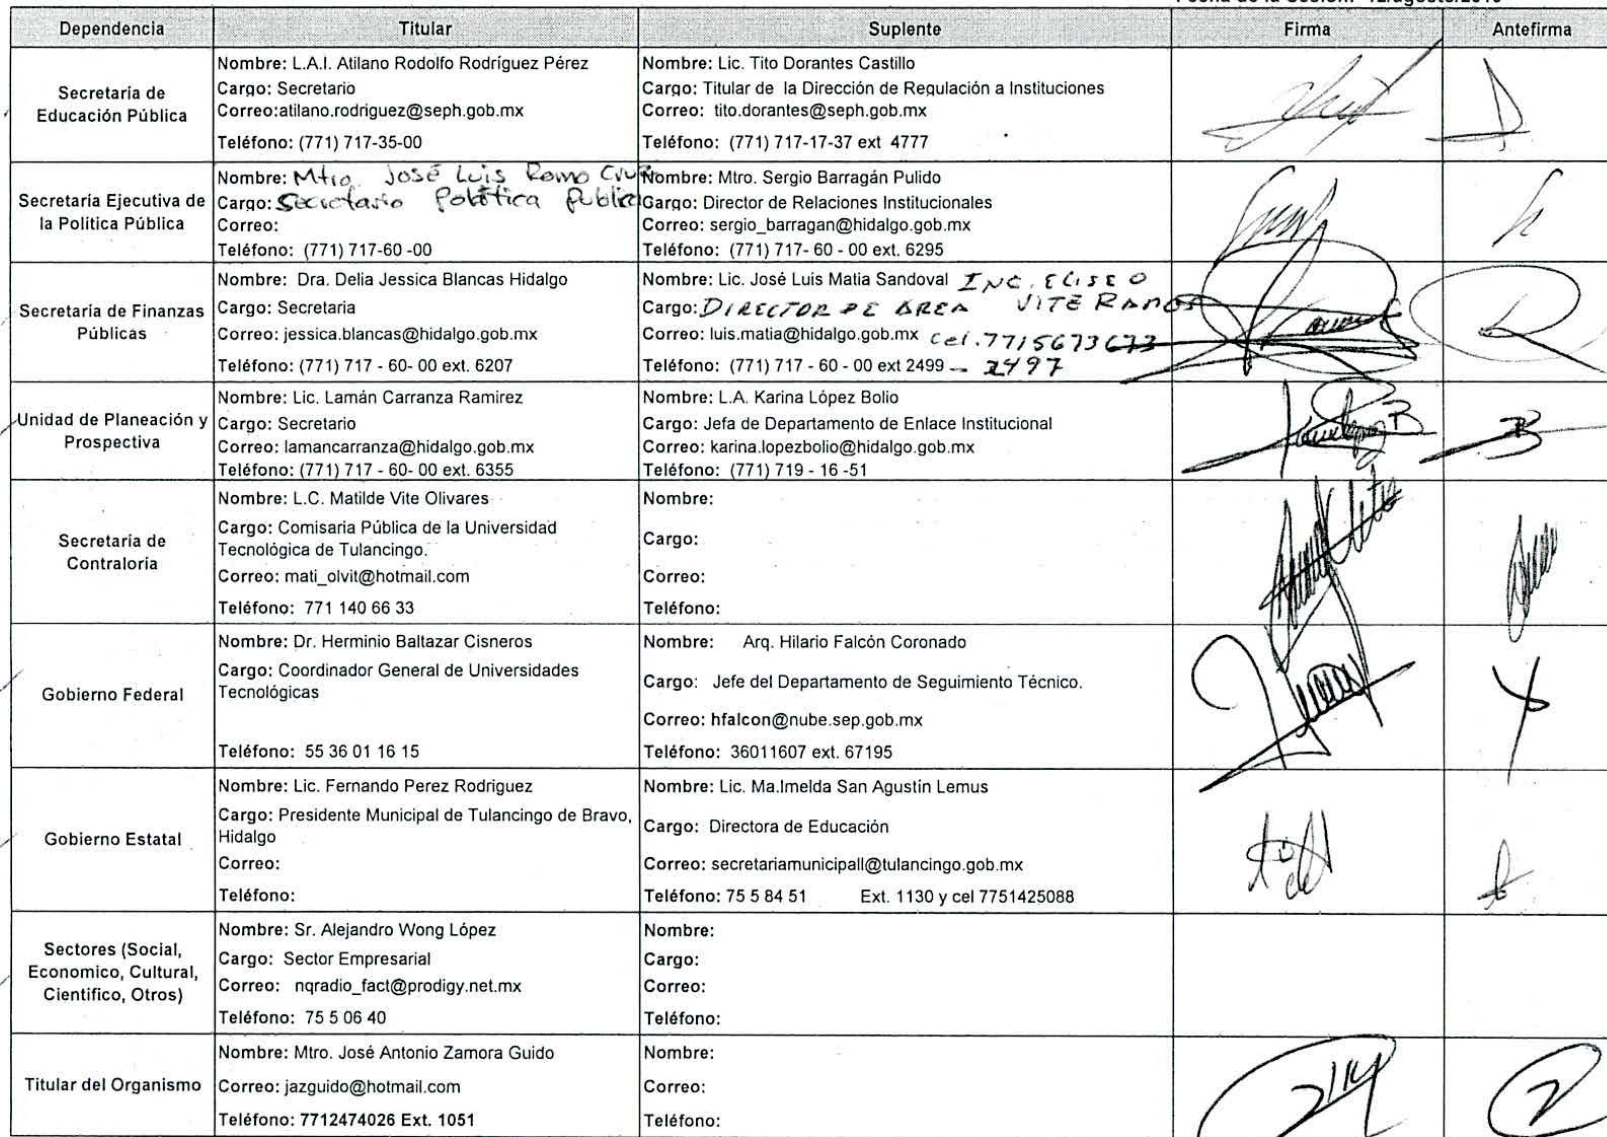 Dependencia Titular Suplente Firma Antefirma
Secretaría de
Educación Pública
Nombre: L.A.I. Atilano Rodolfo Rodríguez Pérez
Cargo: Secretario
Correo:atilano.rodriguez@seph.gob.mx
Teléfono: (771) 717-35-00
Nombre: Lic. Tito Dorantes Castillo
Cargo: Titular de la Dirección de Regulación a Instituciones
Correo: tito.dorantes@seph.gob.mx
Teléfono: (771) 717-17-37 ext 4777
Secretaría Ejecutiva de
la Política Pública
Nombre: Mtro José Luis Romo Cruz
Cargo: Secretario Política Publica
Correo:
Teléfono: (771) 717-60 -00
Nombre: Mtro. Sergio Barragán Pulido
Cargo: Director de Relaciones Institucionales
Correo: sergio_barragan@hidalgo.gob.mx
Teléfono: (771) 717- 60 - 00 ext. 6295
Secretaría de Finanzas
Públicas
Nombre: Dra. Delia Jessica Blancas Hidalgo
Cargo: Secretaria
Correo: jessica.blancas@hidalgo.gob.mx
Teléfono: (771) 717 - 60- 00 ext. 6207
Nombre: Lic. José Luis Matia Sandoval ING. ELISEO
Cargo: DIRECTOR DE AREA VITE RAMOS
Correo: luis.matia@hidalgo.gob.mx cel. 7715673673
Teléfono: (771) 717 - 60 - 00 ext 2499 - 2497
Unidad de Planeación y
Prospectiva
Nombre: Lic. Lamán Carranza Ramirez
Cargo: Secretario
Correo: lamancarranza@hidalgo.gob.mx
Teléfono: (771) 717 - 60- 00 ext. 6355
Nombre: L.A. Karina López Bolio
Cargo: Jefa de Departamento de Enlace Institucional
Correo: karina.lopezbolio@hidalgo.gob.mx
Teléfono: (771) 719 - 16 -51
Secretaría de
Contraloría
Nombre: L.C. Matilde Vite Olivares
Cargo: Comisaria Pública de la Universidad
Tecnológica de Tulancingo.
Correo: mati_olvit@hotmail.com
Teléfono: 771 140 66 33
Nombre:
Cargo:
Correo:
Teléfono:
Gobierno Federal
Nombre: Dr. Herminio Baltazar Cisneros
Cargo: Coordinador General de Universidades
Tecnológicas
Teléfono: 55 36 01 16 15
Nombre: Arq. Hilario Falcón Coronado
Cargo: Jefe del Departamento de Seguimiento Técnico.
Correo: hfalcon@nube.sep.gob.mx
Teléfono: 36011607 ext. 67195
Gobierno Estatal
Nombre: Lic. Fernando Perez Rodriguez
Cargo: Presidente Municipal de Tulancingo de Bravo,
Hidalgo
Correo:
Teléfono:
Nombre: Lic. Ma.Imelda San Agustin Lemus
Cargo: Directora de Educación
Correo: secretariamunicipall@tulancingo.gob.mx
Teléfono: 75 5 84 51 Ext. 1130 y cel 7751425088
Sectores (Social,
Economico, Cultural,
Cientifico, Otros)
Nombre: Sr. Alejandro Wong López
Cargo: Sector Empresarial
Correo: nqradio_fact@prodigy.net.mx
Teléfono: 75 5 06 40
Nombre:
Cargo:
Correo:
Teléfono:
Titular del Organismo
Nombre: Mtro. José Antonio Zamora Guido
Correo: jazguido@hotmail.com
Teléfono: 7712474026 Ext. 1051
Nombre:
Correo:
Teléfono: